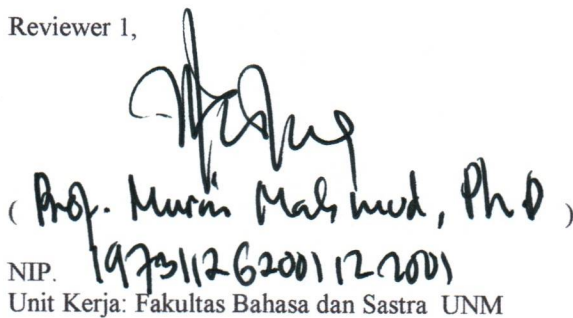 Reviewer 1,
( Prof. Murni Mahmud, Ph D )
NIP. 197311262001122001
Unit Kerja: Fakultas Bahasa dan Sastra UNM